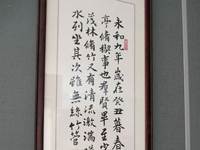 永和九年歲在癸丑暮春
亭脩禊事也群賢畢至少
茂林脩竹又有清流激湍
水列坐其次雖無絲竹管